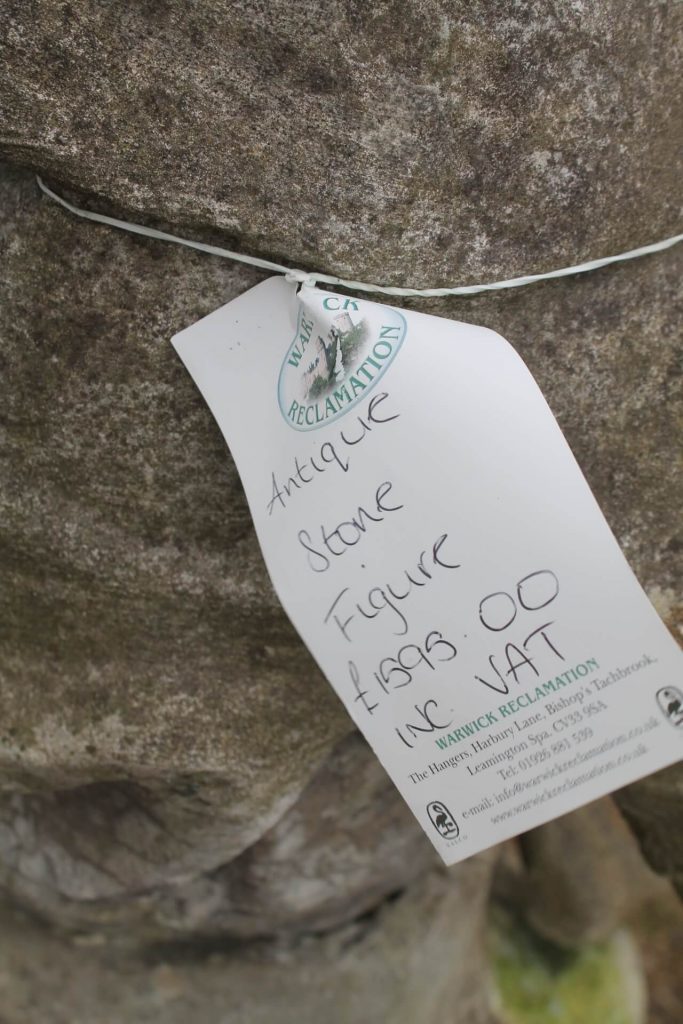 WAR CK
RECLAMATION
Antique
Stone
Figure
£1595.00
INC VAT
WARWICK RECLAMATION
The Hangers, Harbury Lane, Bishop's Tachbrook,
Leamington Spa. CV33 9SA
Tel: 01926 881 539
e-mail: info@warwickreclamation.co.uk
www.warwickreclamation.co.uk
SALVO